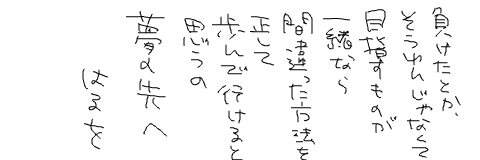 負けたとか、
そうゆんじゃなくて
目指すものが
一緒なら
間違った方法を
正して
歩んで行けると
思うの
夢の先へ
はるを